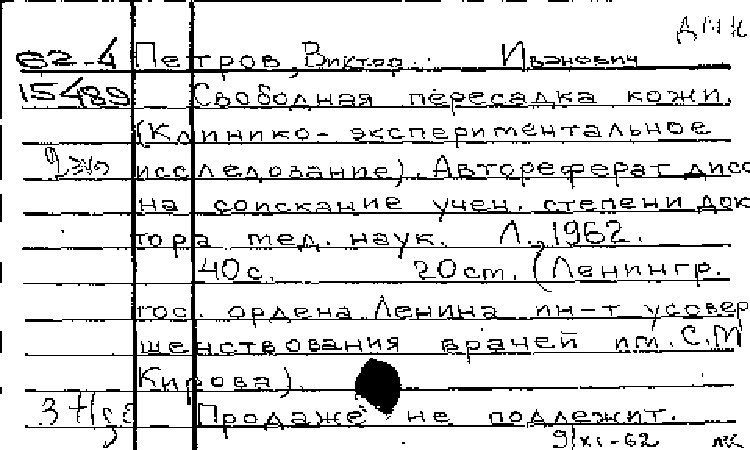 ДМК
62-4 Петров, Виктор Иванович
15489 Свободная пересадка кожи.
(Клинико-экспериментальное
2экз исследование). Автореферат дисс
на соискание учен. степени док
тора мед. наук. Л., 1962.
40с. 20см. (Ленингр.
гос. ордена Ленина ин-т усовер
шенствования врачей им. С.М
Кирова).
Продаже не подлежит.
9/XI-62